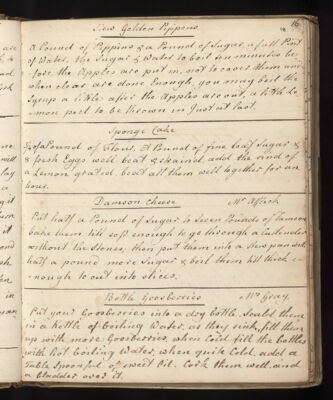 Stew Golden Pippens
16
A Pound of Pippins & a Pound of Sugar a full Pint
of Water, the Sugar & Water to boil ten minutes be-
fore the Apples are put in, not to cover them and
when clear are done Enough, you may boil the
Syrup a little after the Apples are out, a little Le-
mon peel to be thrown in Just at last.
Sponge Cake
of a Pound of Flour, A Pound of fine loaf Sugar &
8 fresh Eggs well beat & strained. add the rind of
a Lemon grated. beat all them well together for an
hour.
Damson Cheese
Put half a Pound of Sugar to Seven Pounds of Damsons
bake them till soft enough to go through a Cullender
without the Stones, then put them into a Stew pan with
half a pound more Sugar & boil them till thick e-
nough to cut into slices.
Bottle Goosberries
Mrs Gray.
Put your Goosberries into a dry bottle. Scald them
in a kettle of boiling Water, as they sink, fill them
up with more Goosberries, when Cold fill the bottles
with hot boiling Water, when quite Cold, add a
Table Spoonful of sweet Oil. Cork them well, and
a bladder over it.